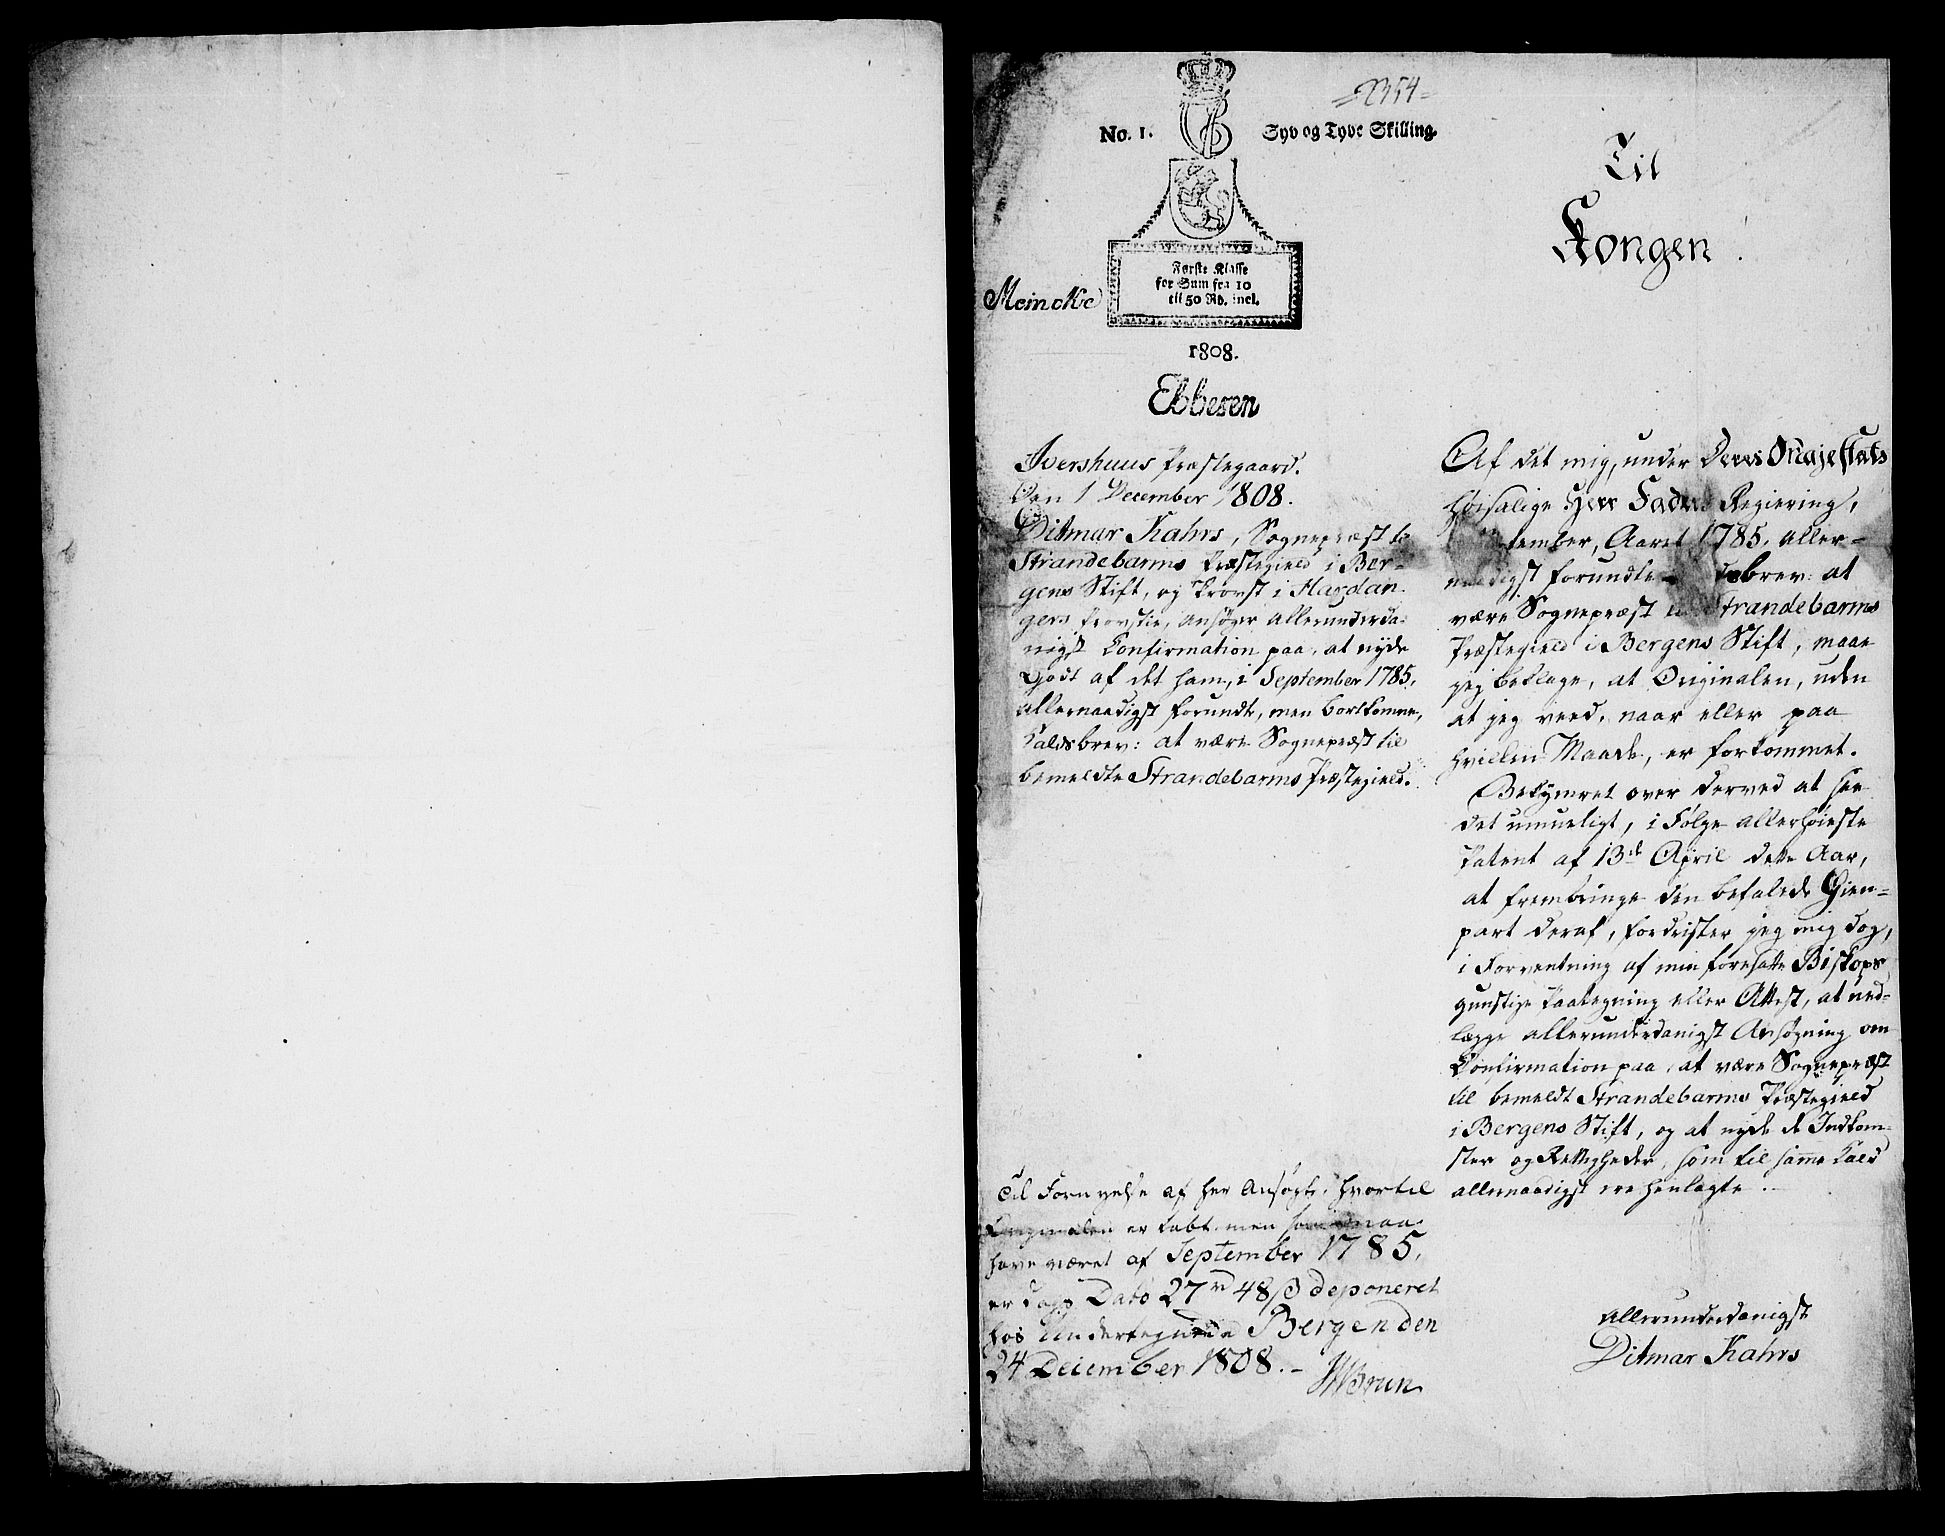 =2354=
No. 1.
Syv og Tyve Skilling.
Første Klasse
for Sum fra 10
til 50 Rd. incl.
Meincke
1808.
Ebbesen
Til
Kongen.
Ivershuus Præstegaard.
Den 1 December 1808.
Ditmar Kahrs, Sognepræst to
Strandebarms Præstegield i Ber-
gens Stift, og Provst i Hardan-
gers Provstie, ansøger allerunderda-
nigst Confirmation paa, at nyde
Godt af det ham, i September 1785,
allernaadigst forundte, men bortkomne,
Kaldsbrev: at være Sognepræst til
bemeldte Strandebarms Præstegield.
Til Fornyelse af her Ansøgte, hvortil
Originalen er tabt men maa
have været af September 1785,
er dags Dato 27 rd 48 ß deponeret
hos Undertegnede Bergen den
24 December 1808.-
Brun
Af det mig, under Deres Majestæts
høisalige Herr Faders Regiering,
tember, Aaret 1785. aller-
naadigst forundte brev: at
være Sognepræst til Strandebarms
Præstegield i Bergens Stift, maae
jeg beklage, at Originalen, uden
at jeg veed, naar eller paa
hvilken Maade, er forkommet.
Bekymret over derved at see
det umueligt, i Følge allerhøieste
Patent af 13de April dette Aar,
at frembringe den befalede Gien-
part deraf, fordrister jeg mig dog,
i Forventning af min foresatte Biskops
gunstige Paategning eller Attest, at ned-
lægge allerunderdanigst Ansøgning om
Confirmation paa, at være Sognepræst
til bemeldt Strandebarms Præstegield
i Bergens Stift, og at nyde de Indkom-
ster og Rettigheder, som til samme Kald
allernaadigst ere henlagte.
Allerunderdanigst
Ditmar Kahrs